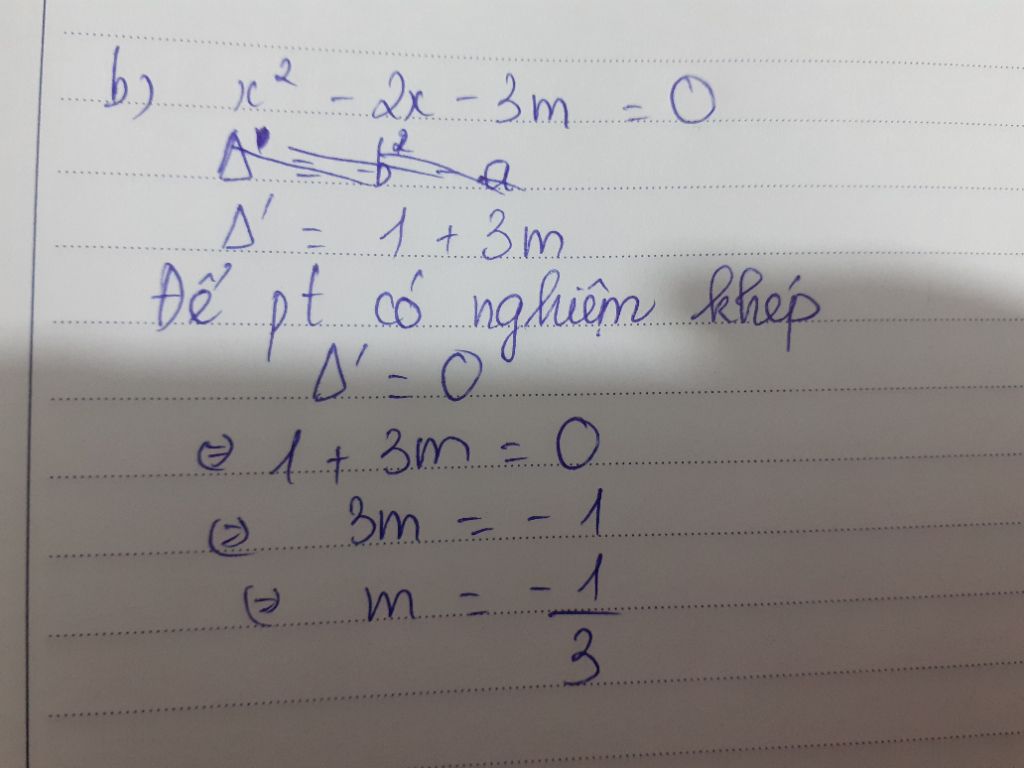 b) x² - 2x - 3m = 0
Δ' = b² - a
Δ' = 1 + 3m
Để pt có nghiệm khép
Δ' = 0
⇔ 1 + 3m = 0
⇔ 3m = -1
⇔ m = -1/3